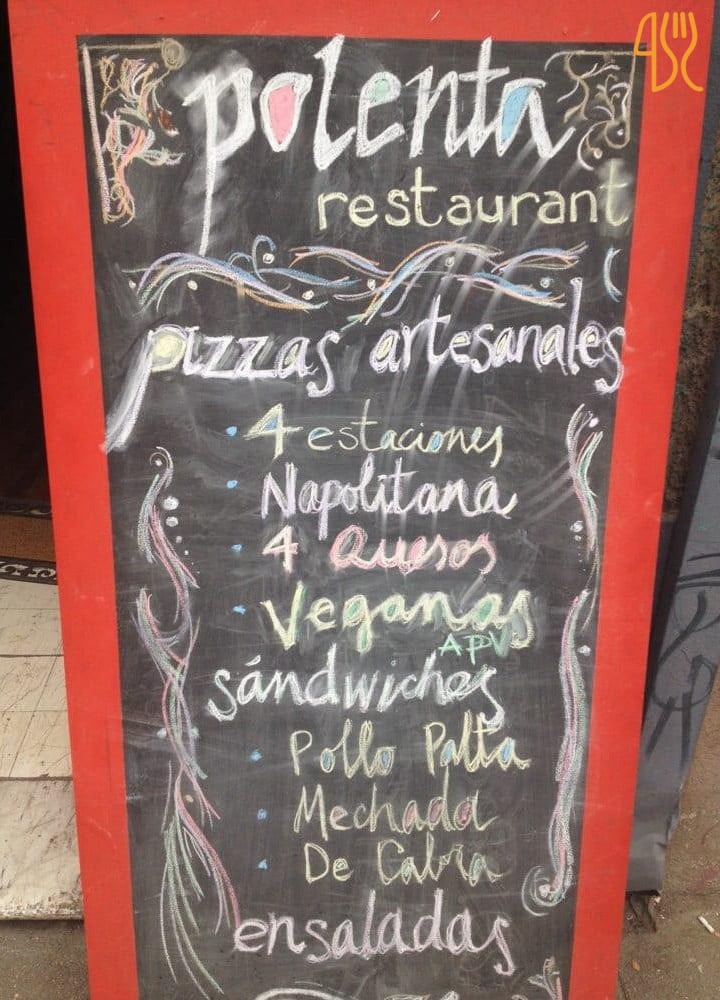 polenta
restaurant
pizzas artesanales
4 estaciones
Napolitana
4 Quesos
Veganas
APV
sándwiches
Pollo Palta
Mechada
De Cabra
ensaladas